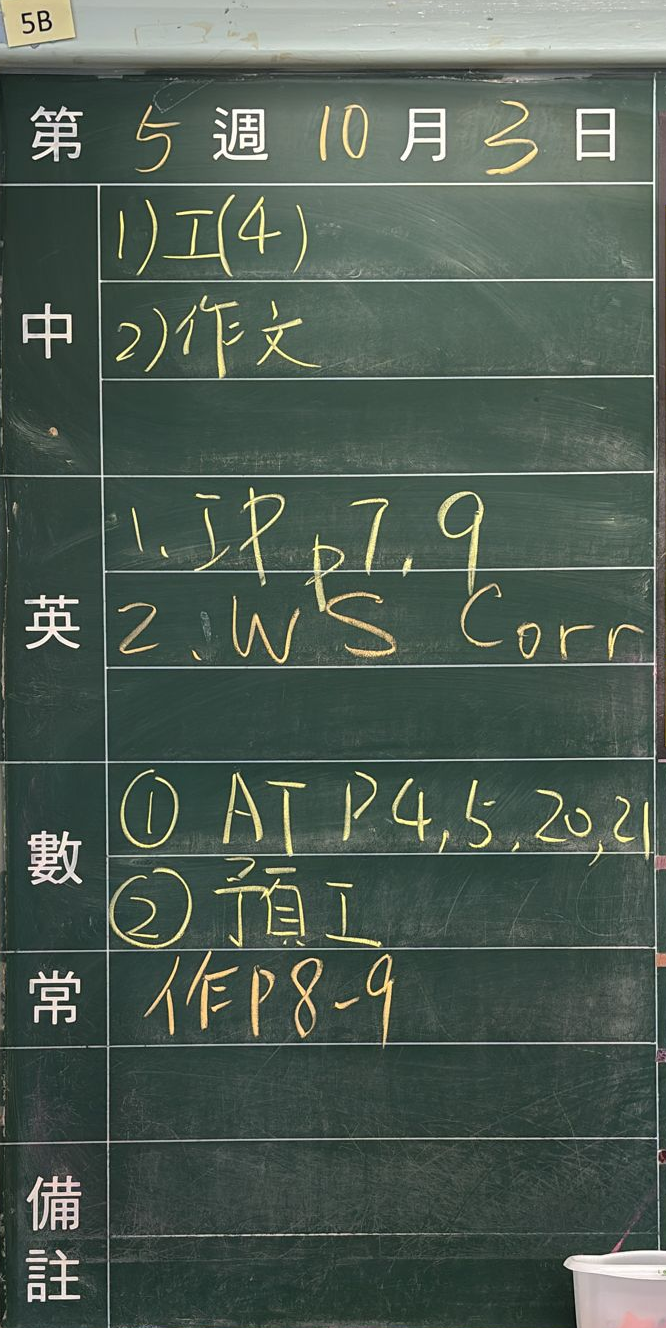 5B
第 5 週 10 月 3 日
中
1) 工(4)
2) 作文
英
1. 工P p7, 9
2. WS Corr
數
① AT P4, 5, 20, 21
② 預工
常
作P8-9
備註